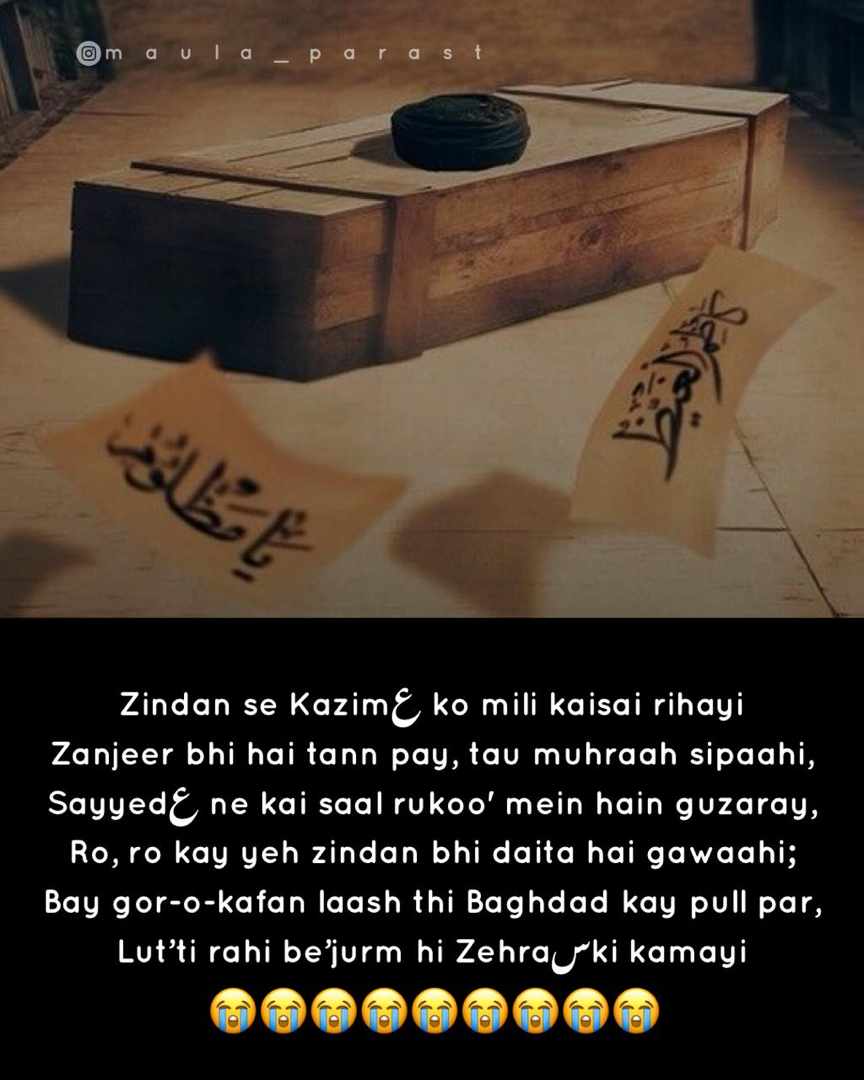 m a u l a _ p a r a s t
يا مظلوم
Zindan se Kazimع ko mili kaisai rihayi
Zanjeer bhi hai tann pay, tau muhraah sipaahi,
Sayyedع ne kai saal rukoo' mein hain guzaray,
Ro, ro kay yeh zindan bhi daita hai gawaahi;
Bay gor-o-kafan laash thi Baghdad kay pull par,
Lut’ti rahi be’jurm hi Zehraس ki kamayi
😭😭😭😭😭😭😭😭😭